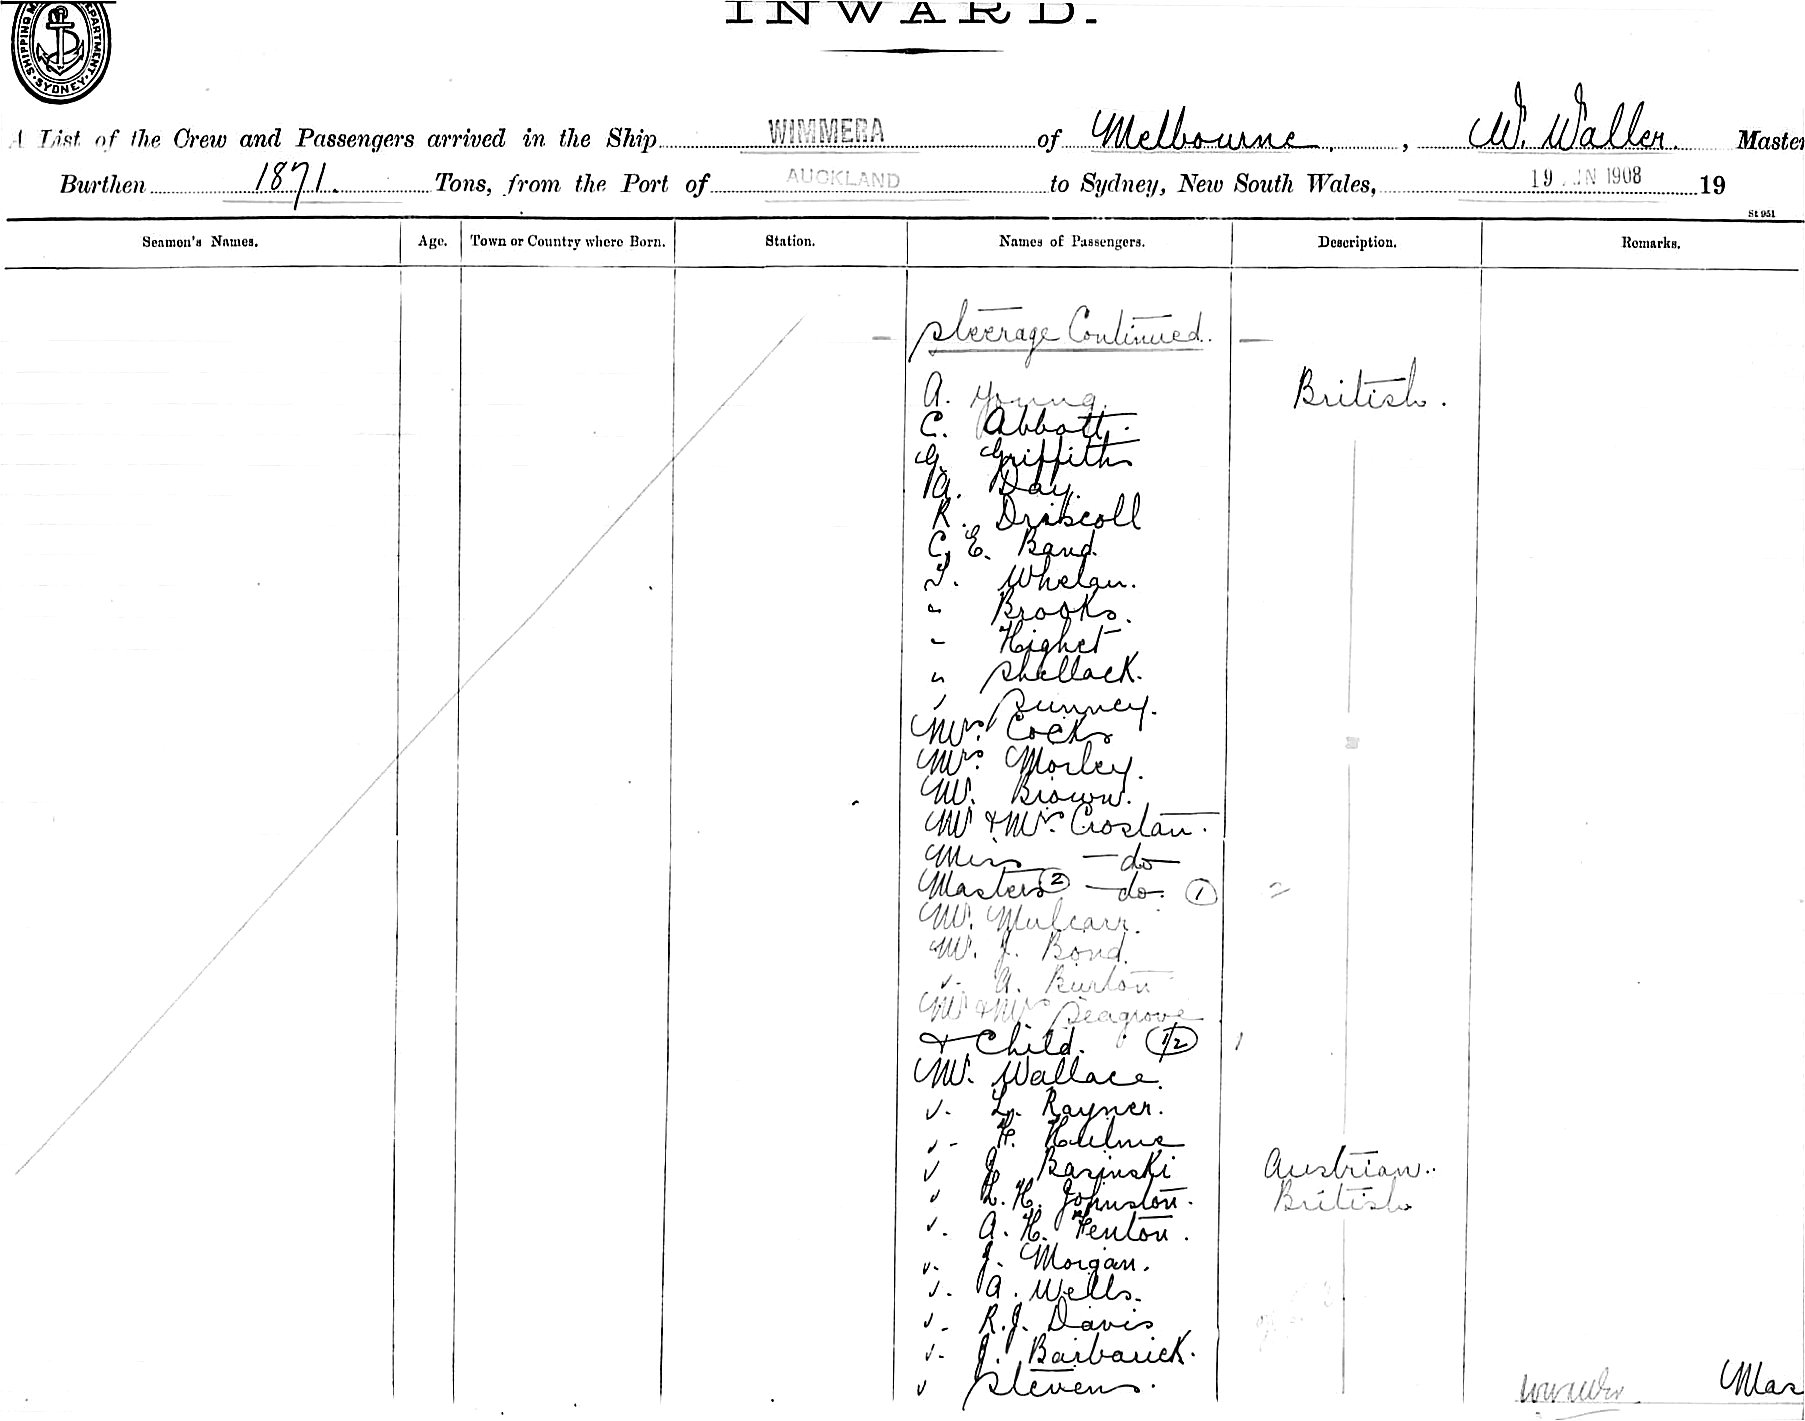 INWARD.
SHIPPING DEPARTMENT SYDNEY
A List of the Crew and Passengers arrived in the Ship WIMMERA of Melbourne, W. Waller Master
Burthen 1871. Tons, from the Port of AUCKLAND to Sydney, New South Wales, 19 JUN 1908 19
St 951
Seamen's Names. Age. Town or Country where Born. Station. Names of Passengers. Description. Remarks.
— Steerage Continued. —
A. Young. British.
C. Abbott.
G. Griffiths
A. Day.
R. Driscoll
C. E. Band.
T. Whelan.
" Brooks.
" Highet
" Shellack.
" Sunney.
Mrs. Cocks
Mrs. Morley.
Mr. Brown.
Mr & Mrs. Crostan.
Miss — do —
Masters (2) — do. (1) 2
Mr. Mulcarr.
Mr. J. Bond.
" A. Burton
Mr & Mrs Seagrove
& Child. (1/2) 1
Mr. Wallace.
" L. Rayner.
" H. Hulme
" J. Basinski Austrian.
" L. H. Johnston. British
" A. H. Fenton.
" J. Morgan.
" A. Wells.
" R. J. Davis
" J. Barbarick.
" Stevens. Mas